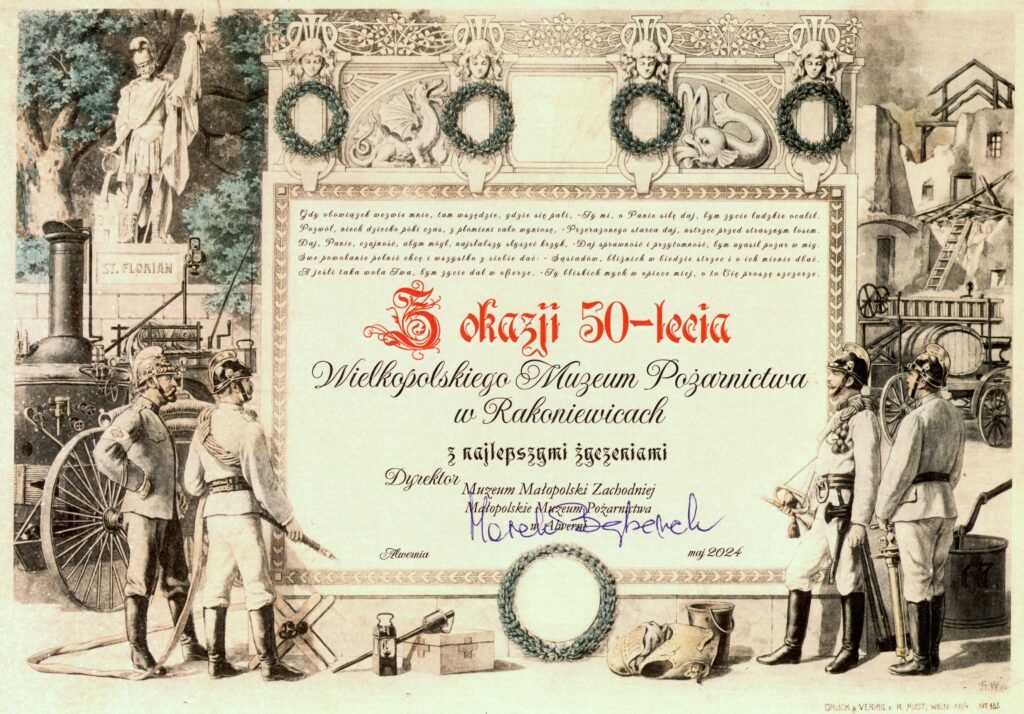 Gdy obowiązek wezwie mnie, tam wszędzie, gdzie się pali, -Ty mi, o Panie siłę daj, bym życie ludzkie ocalił.
Pozwól, niech dziecko pó ki czas, z płomieni cało wyniosę, - Przerażonego starca daj, ustrzec przed strasznym losem.
Daj, Panie, czujność, abym mógł, najsłabszy słyszeć krzyk, -Daj sprawność i przytomność, bym ugasił pożar w mig.
Swe powołanie pełnić chcę i wszystko z siebie dać: - Sąsiadów, bliźnich w biedzie strzec i o ich mienie dbać.
A jeśli taka wola Twa, bym życie dał w ofierze, -Ty bliskich mych w opiece miej, o to Cię proszę szczerze.
ST. FLORIAN
Z okazji 50-lecia
Wielkopolskiego Muzeum Pożarnictwa
w Rakoniewicach
z najlepszymi życzeniami
Dyrektor
Muzeum Małopolski Zachodniej
Małopolskie Muzeum Pożarnictwa
w Alwerni
Alwernia
maj 2024
DRUCK u. VERLAG v. R. WIEN